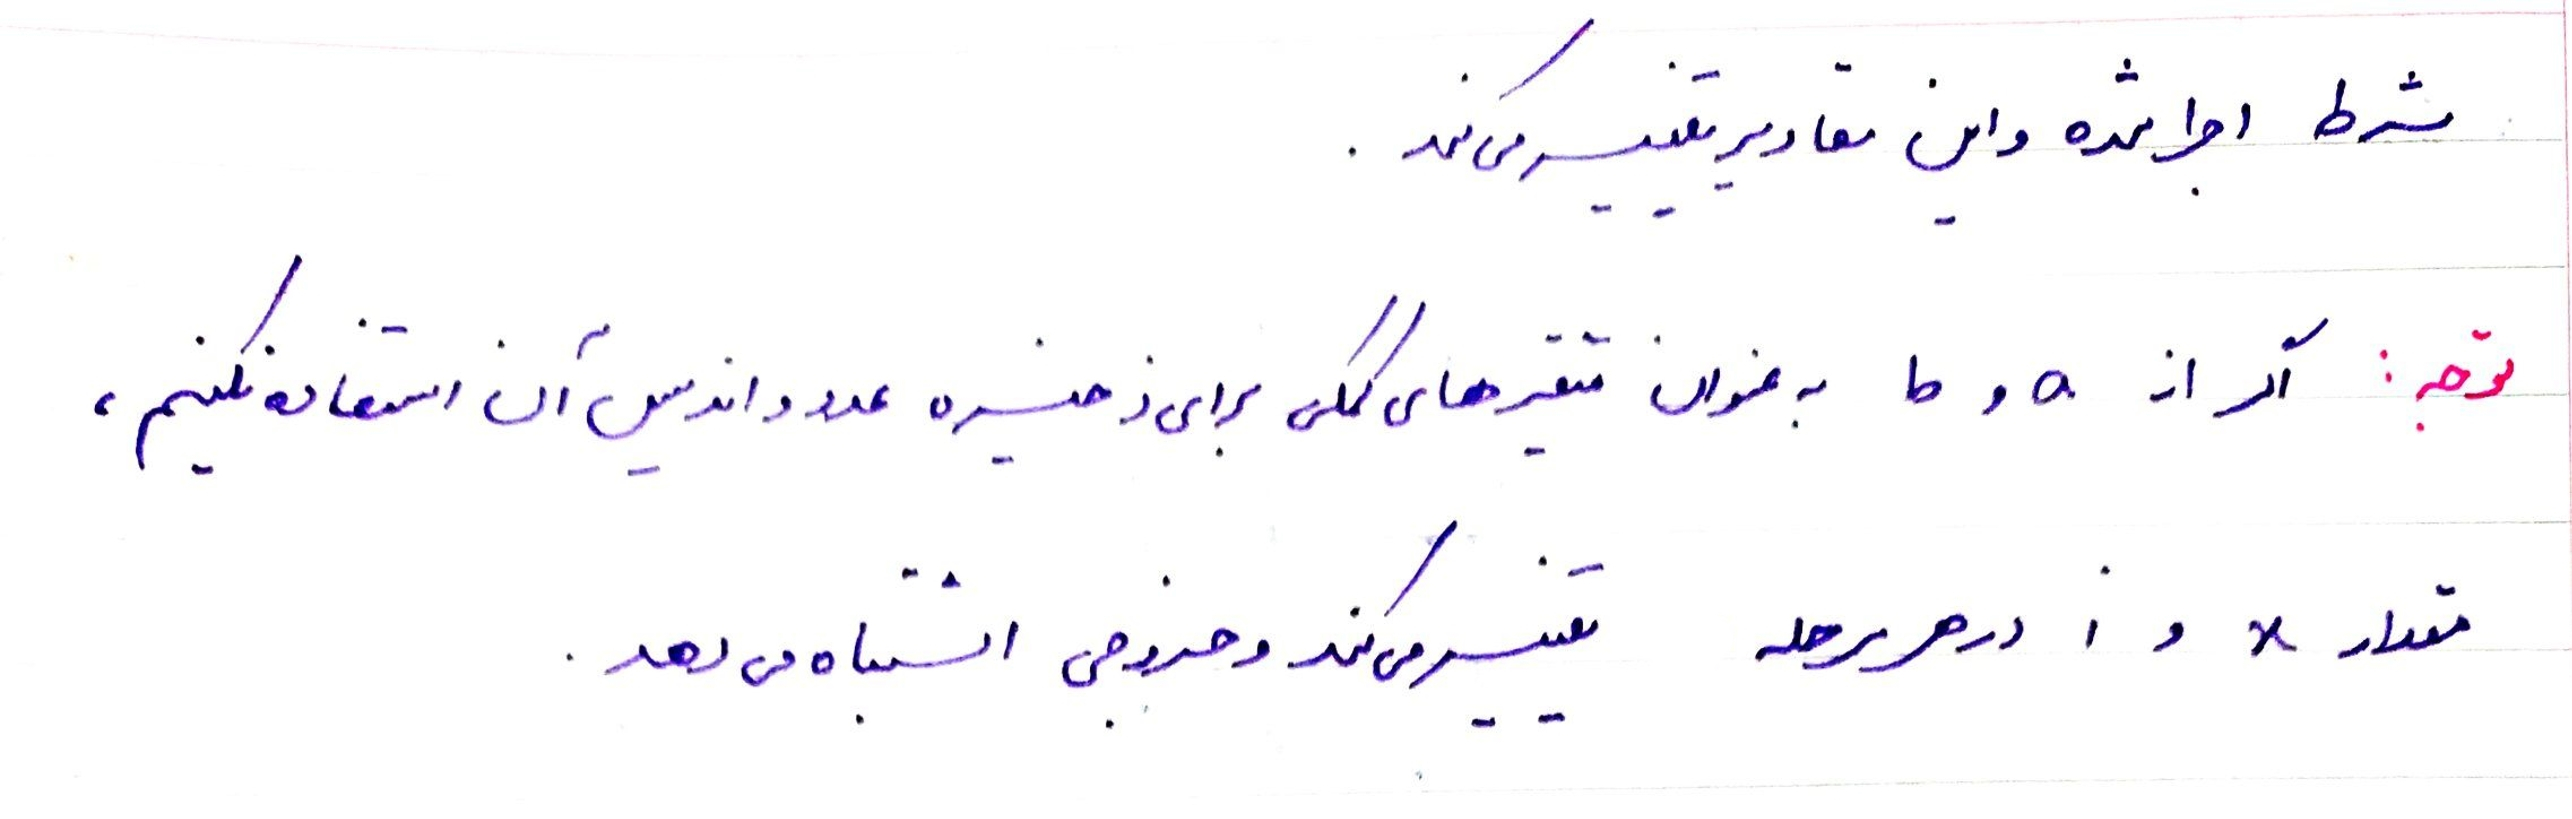 شرط اجرا شده و این مقادیر تغییر می‌کند .
توجه : اگر از a و b به عنوان متغیرهای کمکی برای ذخیره عدد و اندیس آن استفاده نکنیم ،
مقدار x و i در هر مرحله تغییر می‌کند و خروجی اشتباه می‌دهد .